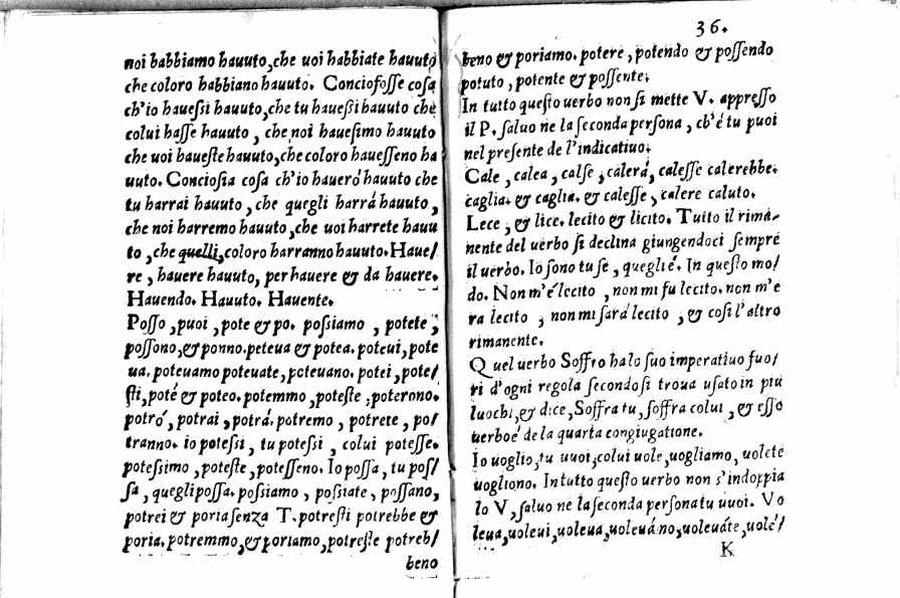 noi habbiamo hauuto, che uoi habbiate hauuto
che coloro habbiano hauuto. Conciofosse cosa
ch'io hauessi hauuto, che tu hauessi hauuto che
colui hasse hauuto, che noi hauesimo hauuto
che uoi haueste hauuto, che coloro hauesseno ha
uuto. Conciosia cosa ch'io hauerò hauuto che
tu harrai hauuto, che quegli harrá hauuto,
che noi harremo hauuto, che uoi harrete hauu
to, che quelli, coloro harranno hauuto. Haue/
re, hauere hauuto, per hauere & da hauere.
Hauendo. Hauuto. Hauente.
Posso, puoi, pote & po. possiamo, potete,
possono, & ponno. poteua & potea. poteui, pote
ua. poteuamo poteuate, poteuano. potei, pote/
sti, poté & poteo. potemmo, poteste, poterono.
potrò, potrai, potrá. potremo, potrete, po/
tranno. io potessi, tu potessi, colui potesse.
potessimo, poteste, potesseno. Io possa, tu pos/
sa, quegli possa. possiamo, possiate, possano,
potrei & poria senza T. potresti potrebbe &
poria. potremmo, & poriamo, potreste potreb/
beno
36.
beno & poriamo. potere, potendo & possendo
potuto, potente & possente.
In tutto questo uerbo non si mette V. appresso
il P. saluo ne la seconda persona, ch'é tu puoi
nel presente de l'indicatiuo.
Cale, calea, calse, calerá, calesse calerebbe.
caglia. & caglia. & calesse, calere caluto.
Lece, & lice. lecito & licito. Tutto il rima-
nente del uerbo si declina giungendoci sempre
il uerbo. Io sono tu se, quegli é. In questo mo/
do. Non m'é lecito, non mi fu lecito. non m'e
ra lecito, non mi sará lecito, & cosi l'altro
rimanente.
Quel uerbo Soffro ha lo suo imperatiuo fuo/
ri d'ogni regola secondo si troua usato in piu
luochi, & dice, Soffra tu, soffra colui, & esso
uerbo é de la quarta congiugatione.
Io uoglio, tu uuoi, colui uole, uogliamo, uolete
uogliono. In tutto questo uerbo non s'indoppia
lo V, saluo ne la seconda persona tu uuoi. Vo
leua, uoleui, uoleua, uoleuáno, uoleuáte, uolé/
K